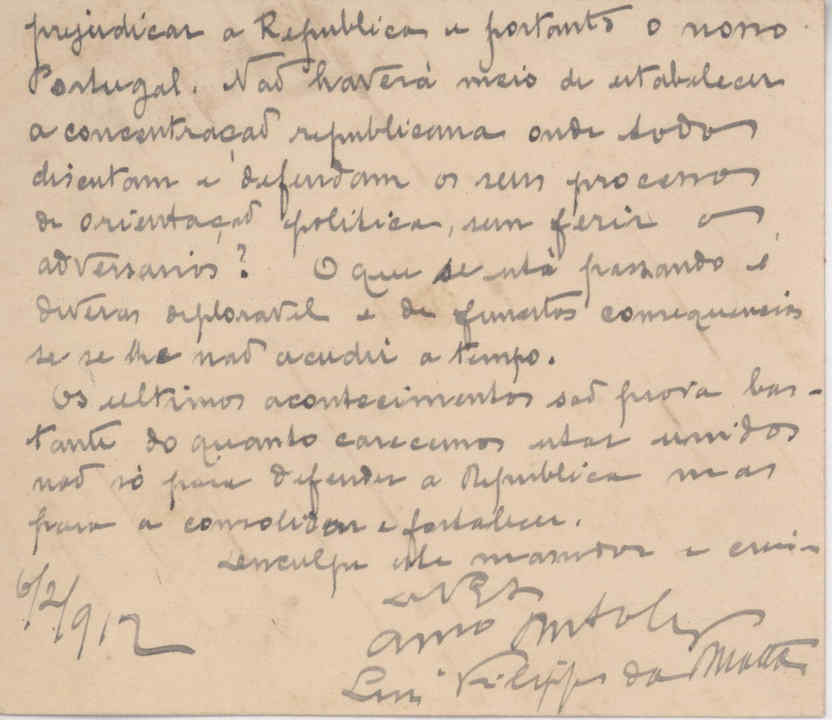 prejudicar a Republica e portanto o nosso
Portugal. Naõ haverá meio de estabelecer
a concentraçaõ republicana onde todos
discutam e defendam os seus processos
de orientaçaõ politica, sem ferir os
adversarios? O que se está passando é
deveras deploravel e de funestos consequencias
se se lhe naõ acudir a tempo.
Os ultimos acontecimentos saõ prova bas-
tante do quanto carecemos estar unidos
naõ só para defender a Republica mas
para a consolidar e fortalecer.
Desculpe este massador e creia-
6/2/912
amo
Luis Filippe da Matta